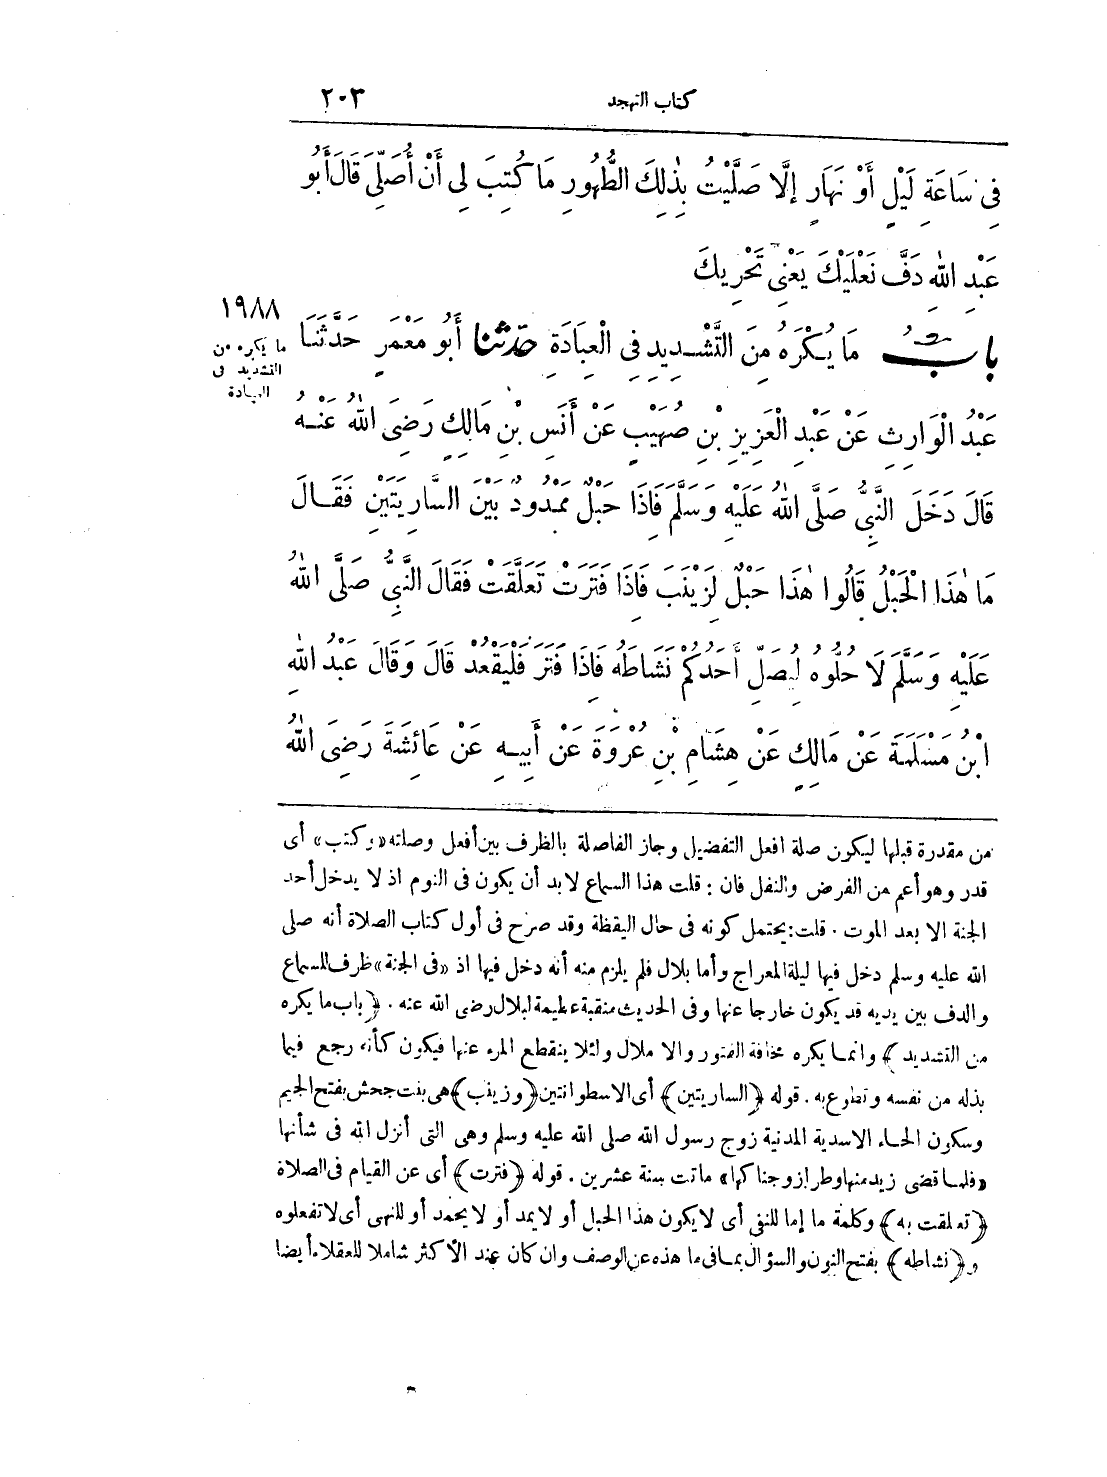 كتاب التهجد
٢٠٣
فِى سَاعَةِ لَيْلٍ أَوْ نَهَارٍ إِلَّا صَلَّيْتُ بِذٰلِكَ الطُّهُورِ مَا كُتِبَ لِى أَنْ أُصَلِّىَ قَالَ أَبُو
عَبْدِ اللهِ دَفَّ نَعْلَيْكَ يَعْنِى تَحْرِيكَ
بابُ مَا يُكْرَهُ مِنَ التَّشْدِيدِ فِى الْعِبَادَةِ حَدَّثَنَا أَبُو مَعْمَرٍ حَدَّثَنَا
١٩٨٨
ما يكره من
التشديد فى
العبادة
عَبْدُ الْوَارِثِ عَنْ عَبْدِ الْعَزِيزِ بْنِ صُهَيْبٍ عَنْ أَنَسِ بْنِ مَالِكٍ رَضِىَ اللهُ عَنْهُ
قَالَ دَخَلَ النَّبِىُّ صَلَّى اللهُ عَلَيْهِ وَسَلَّمَ فَاذَا حَبْلٌ مَمْدُودٌ بَيْنَ السَّارِيَتَيْنِ فَقَالَ
مَا هٰذَا الْحَبْلُ قَالُوا هٰذَا حَبْلٌ لِزَيْنَبَ فَاذَا فَتَرَتْ تَعَلَّقَتْ فَقَالَ النَّبِىُّ صَلَّى اللهُ
عَلَيْهِ وَسَلَّمَ لَا حُلُّوهُ لِيُصَلِّ أَحَدُكُمْ نَشَاطَهُ فَاذَا فَتَرَ فَلْيَقْعُدْ قَالَ وَقَالَ عَبْدُ اللهِ
ابْنُ مَسْلَمَةَ عَنْ مَالِكٍ عَنْ هِشَامِ بْنِ عُرْوَةَ عَنْ أَبِيهِ عَنْ عَائِشَةَ رَضِىَ اللهُ
من مقدرة قبلها ليكون صلة افعل التفضيل وجاز الفاصلة بالظرف بين أفعل وصلته «وكتب» أى
قدر وهو أعم من الفرض والنفل فان : قلت هذا السماع لابد أن يكون فى النوم اذ لا يدخل أحد
الجنة الا بعد الموت . قلت: يحتمل كونه فى حال اليقظة وقد صرح فى أول كتاب الصلاة أنه صلى
الله عليه وسلم دخل فيها ليلة المعراج وأما بلال فلم يلزم منه أنه دخل فيها اذ «فى الجنة» ظرف للسماع
والدف بين يديه قد يكون خارجا عنها وفى الحديث منقبة عظيمة لبلال رضى الله عنه . (باب ما يكره
من التشديد) وانما يكره مخافة الفتور والاملال ولئلا ينقطع المرء عنها فيكون كأنه رجع فيما
بذله من نفسه وتطوع به . قوله (الساريتين) أى الاسطوانتين (وزينب) هى بنت جحش بفتح الجيم
وسكون الحاء الاسدية المدنية زوج رسول الله صلى الله عليه وسلم وهى التى أنزل الله فى شأنها
«فلما قضى زيد منها وطرا زوجناكها» ماتت سنة عشرين . قوله (فترت) أى عن القيام فى الصلاة
(تعلقت به) وكلمة ما إما للنفى أى لا يكون هذا الحبل أو لا يمد أو لا يحمد أو للنهى أى لا تفعلوه
و(نشاطه) بفتح النون والسؤال بما فى ما هذه عن الوصف وان كان عند الأكثر شاملا للعقلاء أيضا